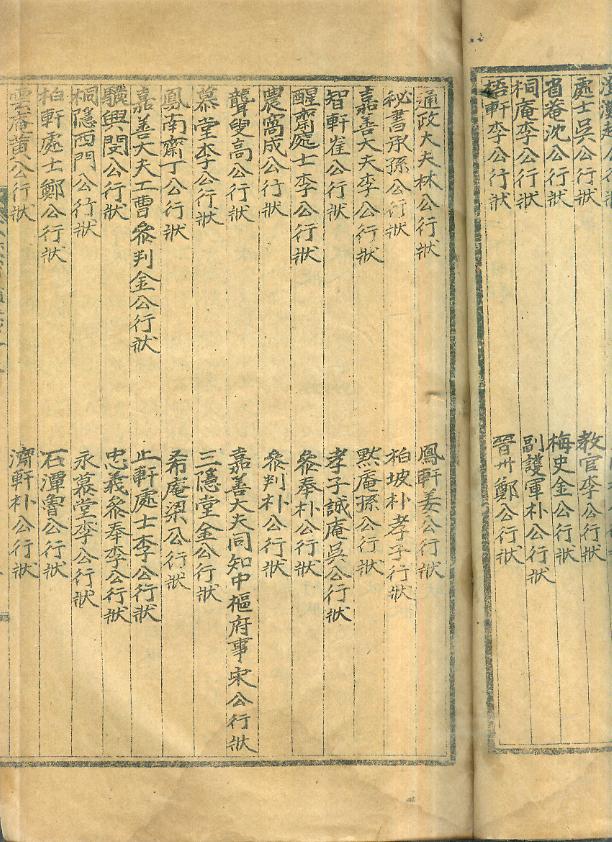 處士吳公行狀 教官李公行狀
省菴沈公行狀 梅史金公行狀
桐庵李公行狀 副護軍朴公行狀
梧軒李公行狀 晉州鄭公行狀
通政大夫林公行狀 鳳軒姜公行狀
秘書丞孫公行狀 柏坡朴孝子行狀
嘉善大夫李公行狀 默庵孫公行狀
智軒崔公行狀 孝子誠庵吳公行狀
醒齋處士李公行狀 參奉朴公行狀
農窩成公行狀 參判朴公行狀
聾叟高公行狀 嘉善大夫同知中樞府事宋公行狀
慕堂李公行狀 三隱堂金公行狀
鳳南齋丁公行狀 希庵梁公行狀
嘉善大夫工曹參判金公行狀 止軒處士李公行狀
驥興閔公行狀 忠義參奉李公行狀
桐隱西門公行狀 永慕堂李公行狀
柏軒處士鄭公行狀 石潭魯公行狀
雲庵諸公行狀 濟軒朴公行狀